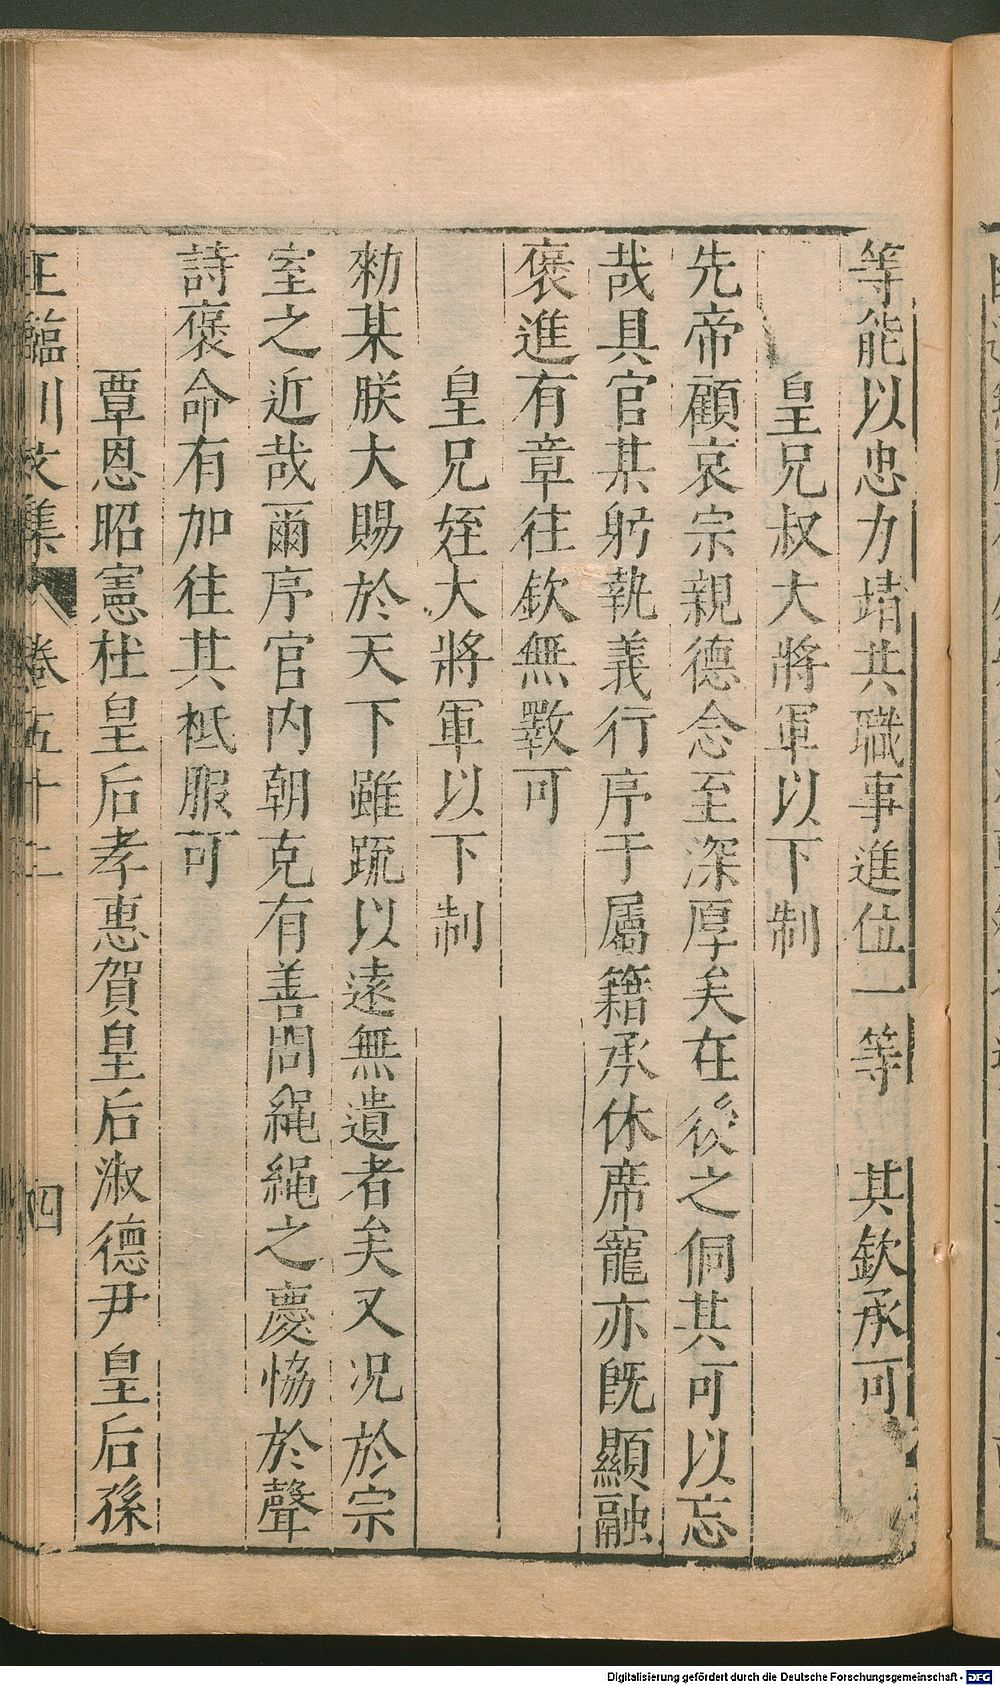 等能以忠力靖共職事進位一等　其欽承可
皇兄叔大將軍以下制
先帝顧哀宗親德念至深厚矣在後之侗其可以忘
哉具官某躬執義行序于屬籍承休席寵亦旣顯融
褒進有章往欽無斁可
皇兄姪大將軍以下制
勑某朕大賜於天下雖疏以遠無遺者矣又况於宗
室之近哉爾序官内朝克有善問繩繩之慶恊於聲
詩褒命有加往其祗服可
覃恩昭憲杜皇后孝惠賀皇后淑德尹皇后孫
王臨川文集 卷五十三 四
Digitalisierung gefördert durch die Deutsche Forschungsgemeinschaft - DFG